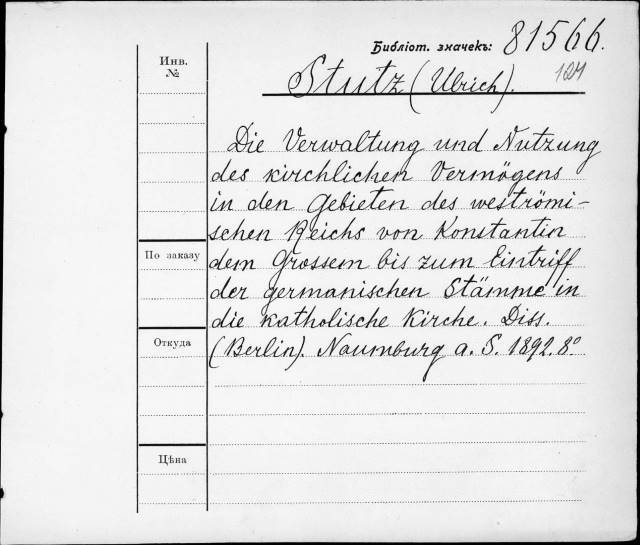 Библіот. значекъ: 81566.
Инв.
№
Stutz (Ulrich).
124
Die Verwaltung und Nutzung
des kirchlichen Vermögens
in den Gebieten des weströmi-
schen Reichs von Konstantin
dem Grossem bis zum Eintriff
der germanischen Stämme in
die katholische Kirche. Diss.
(Berlin). Naumburg a. S. 1892. 8°
По заказу
Откуда
Цѣна